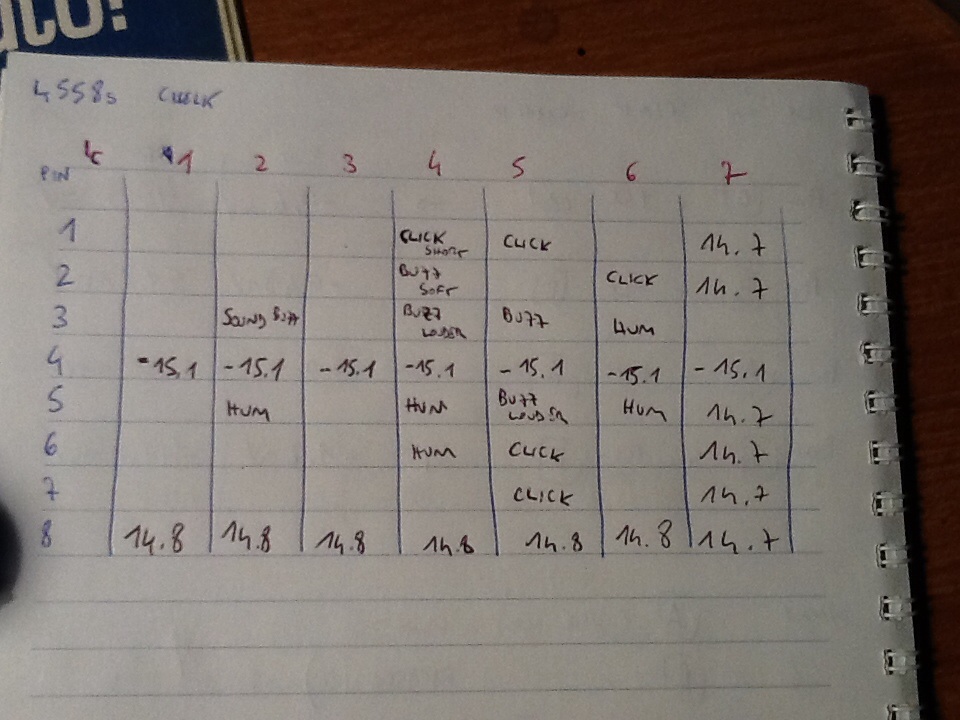 4558s CHECK
IC 1 2 3 4 5 6 7
PIN
1 CLICK SHORT CLICK 14.7
2 BUZZ SOFT CLICK 14.7
3 SOUND BUZZ BUZZ LOUDER BUZZ HUM
4 -15.1 -15.1 -15.1 -15.1 -15.1 -15.1 -15.1
5 HUM HUM BUZZ LOUDER HUM 14.7
6 HUM CLICK 14.7
7 CLICK 14.7
8 14.8 14.8 14.8 14.8 14.8 14.8 14.7